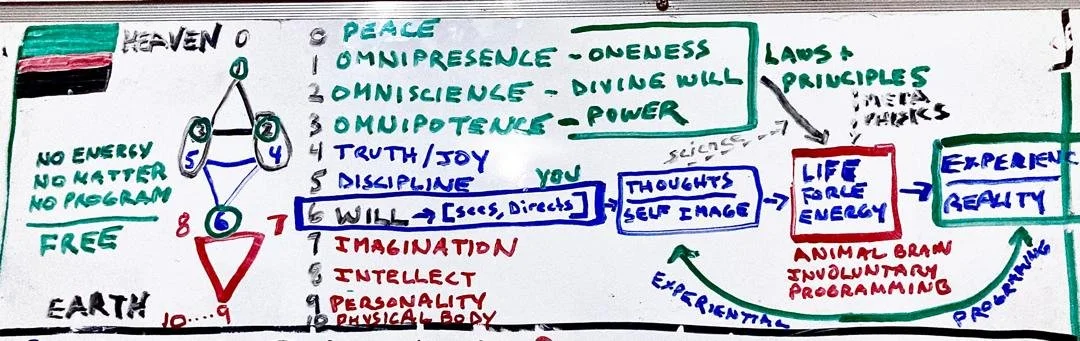 HEAVEN 0
1
3 2
5 4
8 6 7
10....9
NO ENERGY
NO MATTER
NO PROGRAM
FREE
EARTH
0 PEACE
1 OMNIPRESENCE - ONENESS
2 OMNISCIENCE - DIVINE WILL
3 OMNIPOTENCE - POWER
4 TRUTH/JOY
5 DISCIPLINE
YOU
6 WILL → [Sees, Directs]
7 IMAGINATION
8 INTELLECT
9 PERSONALITY
10 PHYSICAL BODY
THOUGHTS
SELF IMAGE
LAWS +
PRINCIPLES
META
PHISICS
science
LIFE
FORCE
ENERGY
ANIMAL BRAIN
INVOLUNTARY
PROGRAMMING
EXPERIENC
REALITY
EXPERIENTIAL
PROGRAMING